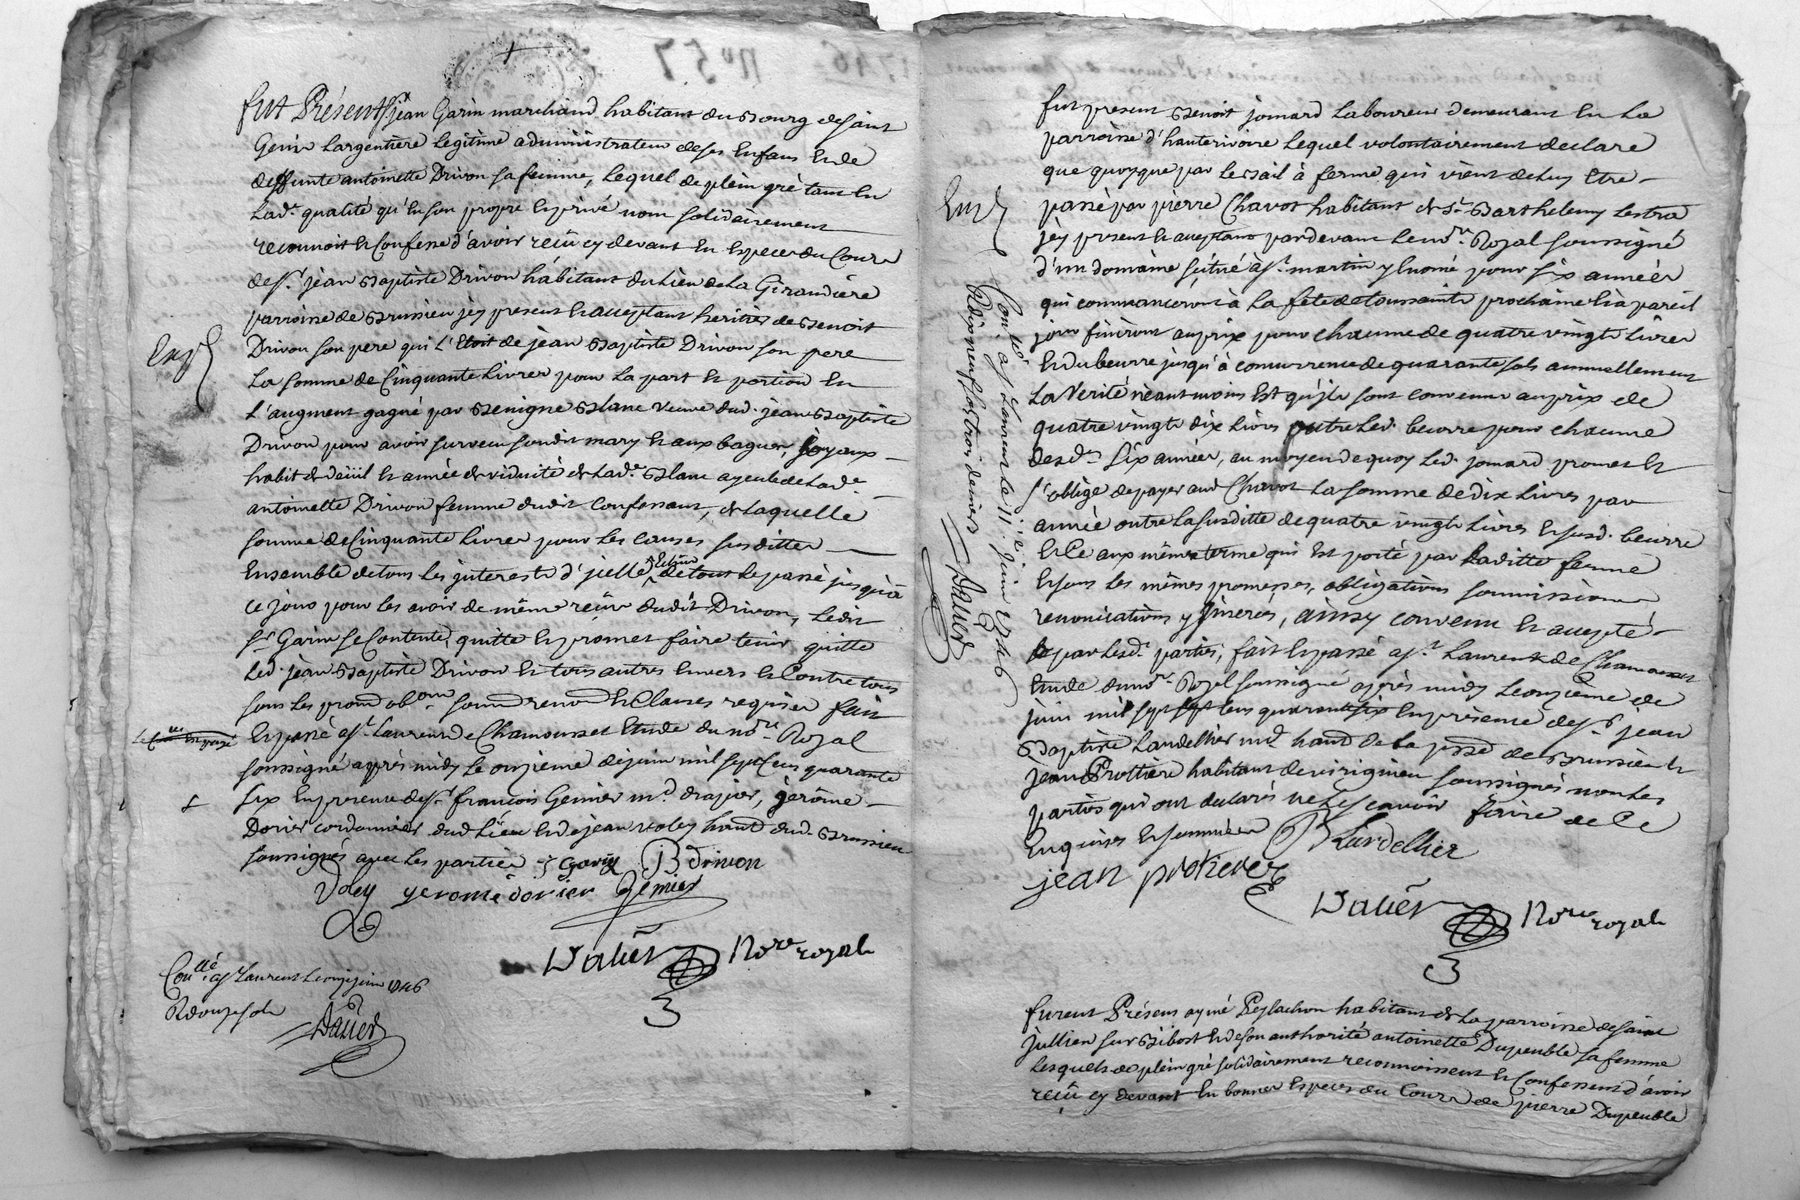 fut Présent sr jean Garin marchand habitant du Bourg de saint
Genis Largentière legitime administrateur de ses Enfans Et de
deffunte antoinette Drivon sa femme, Lequel de plein gré tant En
Lad.e qualité qu'En son propre Et privé nom solidairement
reconnoit Et Confesse d'avoir reçû cy devant En Especes du Cours
de sr. jean Baptiste Drivon habitant du Lieu de La Girandiére
parroisse de Brussieu jcy present Et acceptant heritier de Benoit
Drivon son pere qui L'Etoit de jean Baptiste Drivon son pere
La somme de Cinquante Livres pour La part Et portion En
L'augment gagné par Benigne Blanc veuve dud. jean Baptiste
Drivon pour avoir survecu sondit mary Et aux bagues, joyaux
habit de deüil Et année de viduité de Lad.e Blanc ayeule de Lad.e
antoinette Drivon femme dudit Confessant, de Laquelle
somme de Cinquante Livres pour Les Causes susdittes
Ensemble de tous Les jnterests d'jcelle de tout Le passé jusqu'à
ce jour pour Les avoir de même reçûs dudit Drivon, Ledit
sr Garin se Contente, quitte Et promet faire tenir quitte
Led. jean Baptiste Drivon Et tous autres Envers Et Contre tous
sous Les promd obon soumd renond Et Clauses requises fait
Et passé à st. Laurent de Chamousset Etude du nore. Royal
soussigné après midy Le onzieme de juin mil sept Cens quarante
six En presence de sr. françois Genier md. drapier, jerôme
Dorier cordonnier dud. Lieu Et de jean voley habnt dud. Brussieu
soussignés avec Les parties j Garin JB drivon
Voley yeromé dorier Genier
Nore royal
Conllé à st Laurent Le onze juin 1746
R douze sols
fut present Benoit jomard Laboureur demeurant En La
parroisse d'hauterivoire Lequel volontairement declare
que quoyque par Le Bail à ferme qui vient de Luy Etre
passé par pierre Chavot habitant de St. Barthelemy Lestra
jcy present Et acceptant pardevant Le nore. Royal soussigné
d'un domaine scitué à st. martin y Enomé pour six années
qui commanceront à La fete de toussaints prochaine Et à pareil
jour finiront au prix pour chacune de quatre vingt Livres
Et du beurre jusqu'à concurrence de quarante sols annuellement
La Verité néantmoins Est qu'jls sont convenus au prix de
quatre vingt dix Livres outre Led. beurre pour chacune
desd. six années, au moyen de quoy Led. jomard promet Et
s'oblige de payer aud Chavot La somme de dix Livres par
année outre La susditte de quatre vingt Livres Et susd. beurre
Et Ce aux mêmes terme qui Est porté par Laditte ferme
Et sous Les mêmes promesses, obligations soumissions
renonciations y jnserées, ainsy convenu Et accepté
par Lesd. parties, fait Et passé à st. Laurent de Chamousset
Etude du nore. Royal soussigné après midy Le onzième de
juin mil sept Cens quarante six En présence de sr. jean
Baptiste Lardellier md. habnt de La psse de Brussieu Et
jean Prottiere habitant de virigneu soussignés non Les
parties qui ont declarés ne Sçavoir faire de Ce
Enquises Et sommées B Lardellier
jean protiere
Nore royal
Conllé à st Laurent Le 11.e juin 1746
R dix neuf sols trois deniers
furent Présens aymé Peylachon habitant de La parroisse de saint
jullien sur Bibost Et de son authorité antoinette Dupeuble sa femme
Lesquels de plein gré solidairement reconnoissent Et Confessent d'avoir
reçû cy devant En bonnes Especes du Cours de pierre Dupeuble